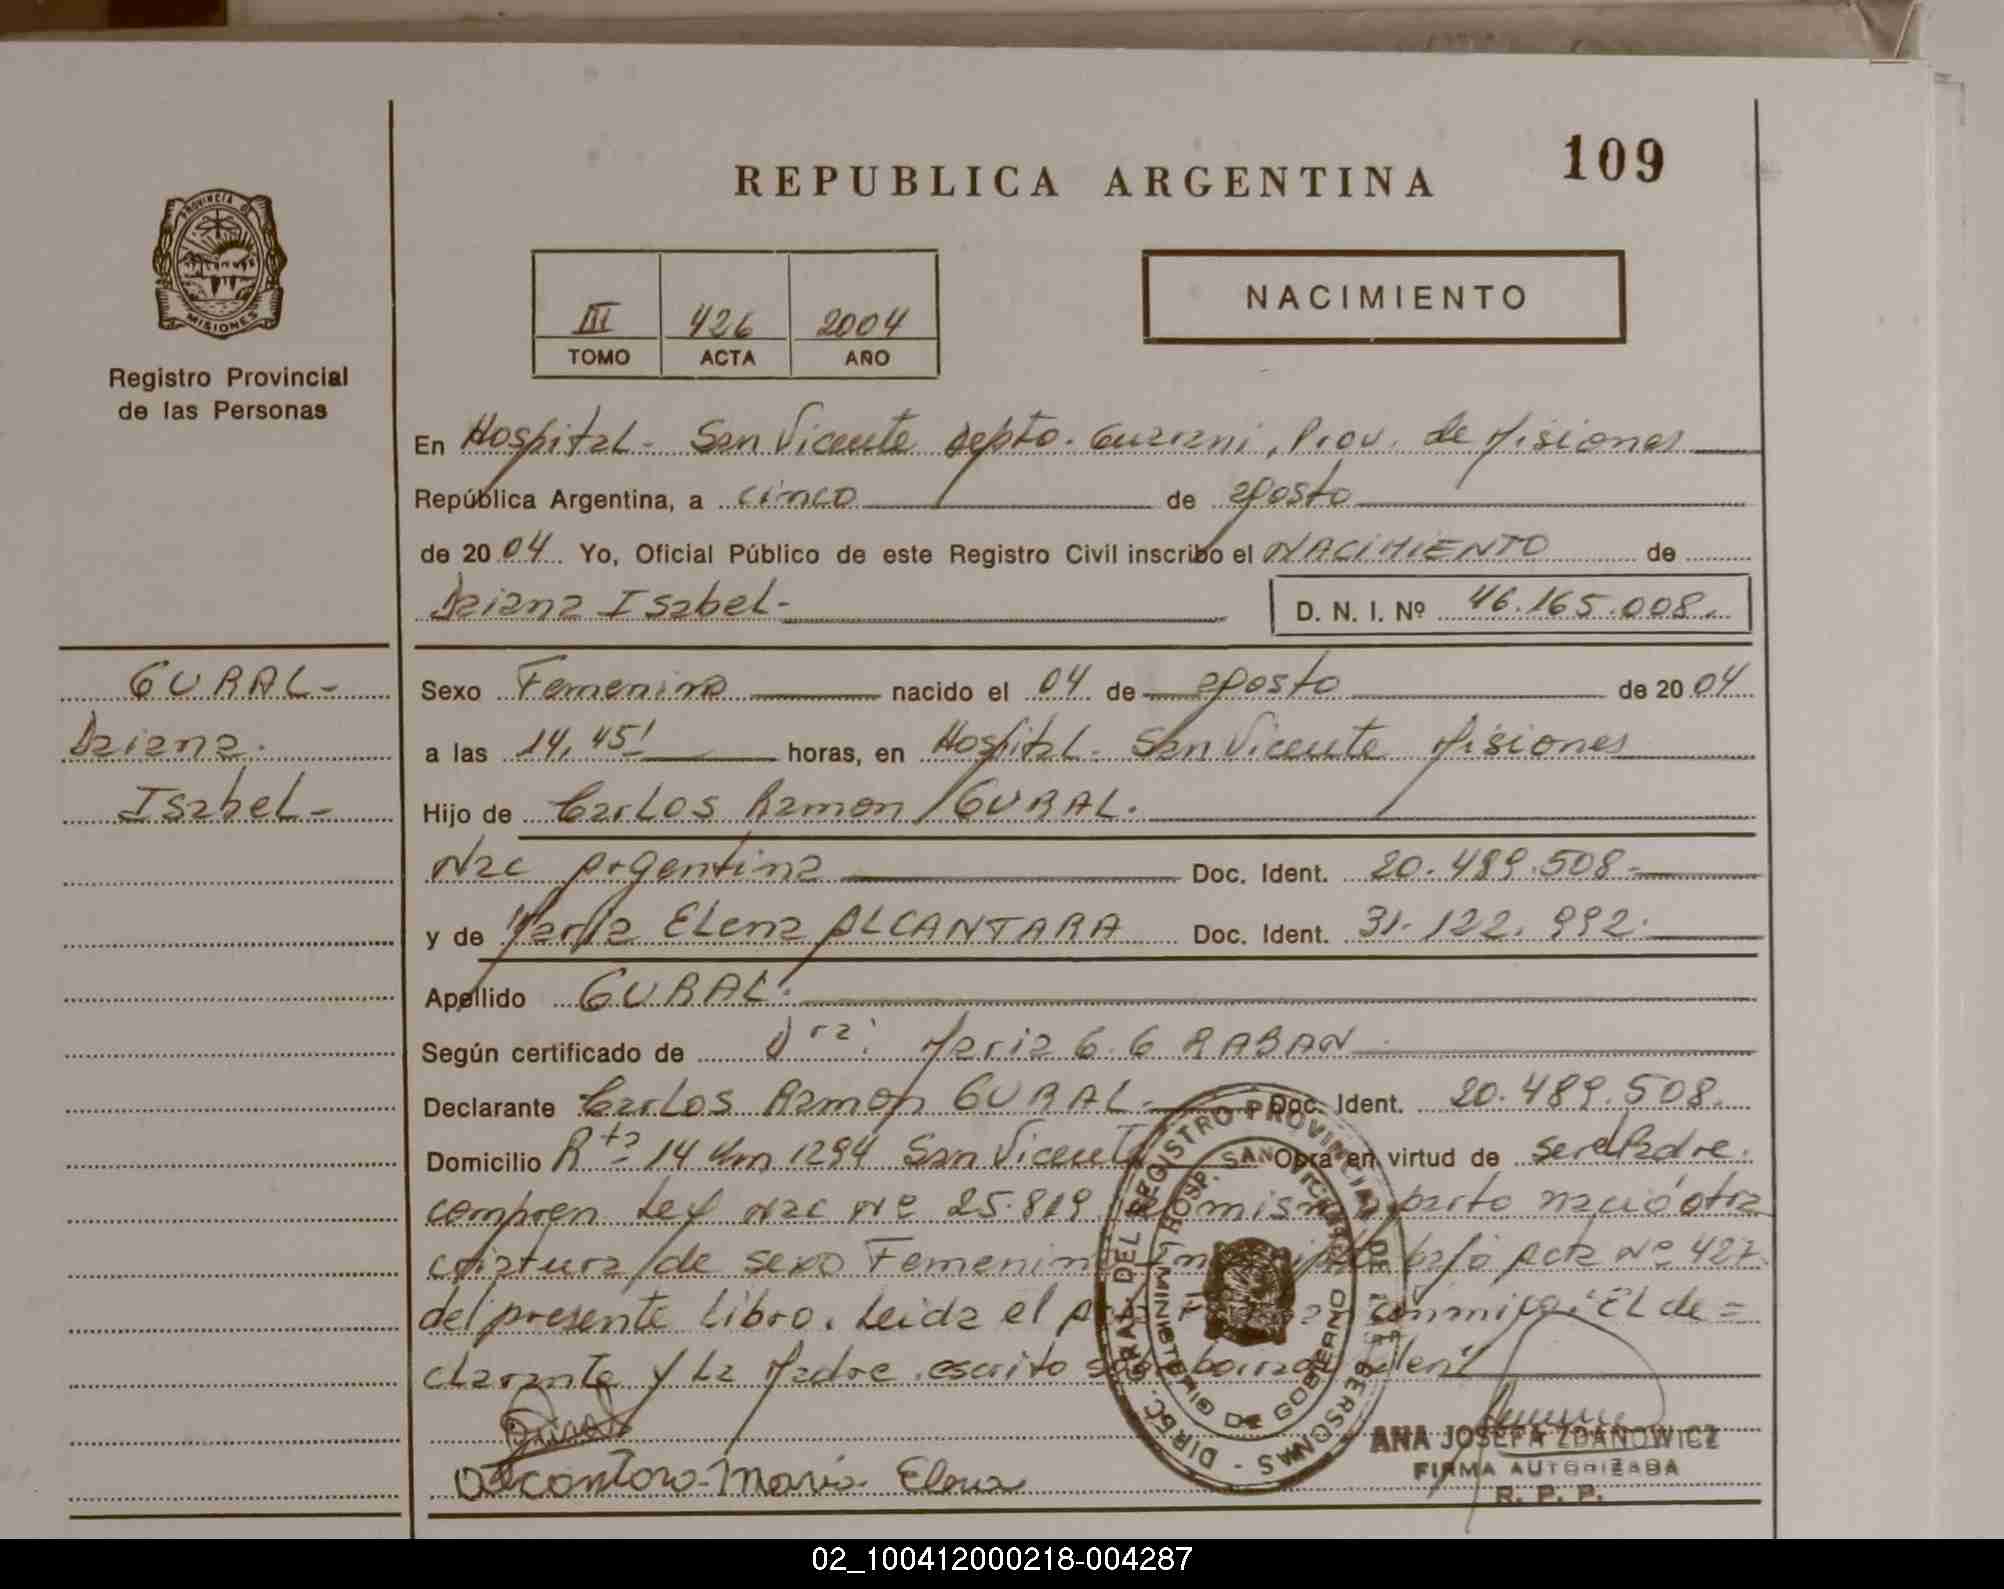 109
REPUBLICA ARGENTINA
PROVINCIA DE
MISIONES
Registro Provincial
de las Personas
III 426 2004
TOMO ACTA AÑO
NACIMIENTO
En Hospital - San Vicente Depto. Guarani, Prov. de Misiones
República Argentina, a cinco de agosto
de 2004 Yo, Oficial Público de este Registro Civil inscribo el NACIMIENTO de
Daiana Isabel -
D. N. I. Nº 46.165.008.
GURAL -
Daiana.
Isabel -
Sexo Femenino nacido el 04 de agosto de 2004
a las 14,45' horas, en Hospital - San Vicente Misiones
Hijo de Carlos Ramon GURAL.
Nac Argentina Doc. Ident. 20.489.508 -
y de Maria Elena ALCANTARA Doc. Ident. 31.122.992.
Apellido GURAL.
Según certificado de Dra: Maria G. G
Declarante Carlos Ramon GURAL. Doc. Ident. 20.489.508.
Domicilio Rta 14 Km 1294 San Vicente Obra en virtud de ser el Padre.
compren Ley Nac Nº 25.819 mismo parto nació otra
criatura de sexo Femenino bajo Acta Nº 427
del presente Libro. Leida el Acta El de =
clarante y La Madre. escrito
Alcantara Maria Elena
DIREC. GRAL. DEL REGISTRO PROVINCIAL DE LAS PERSONAS -
HOSP. SAN VICENTE
MINISTERIO DE GOBIERNO
ANA JOSEFA ZDANOWICZ
FIRMA AUTORIZADA
R. P. P.
02_100412000218-004287